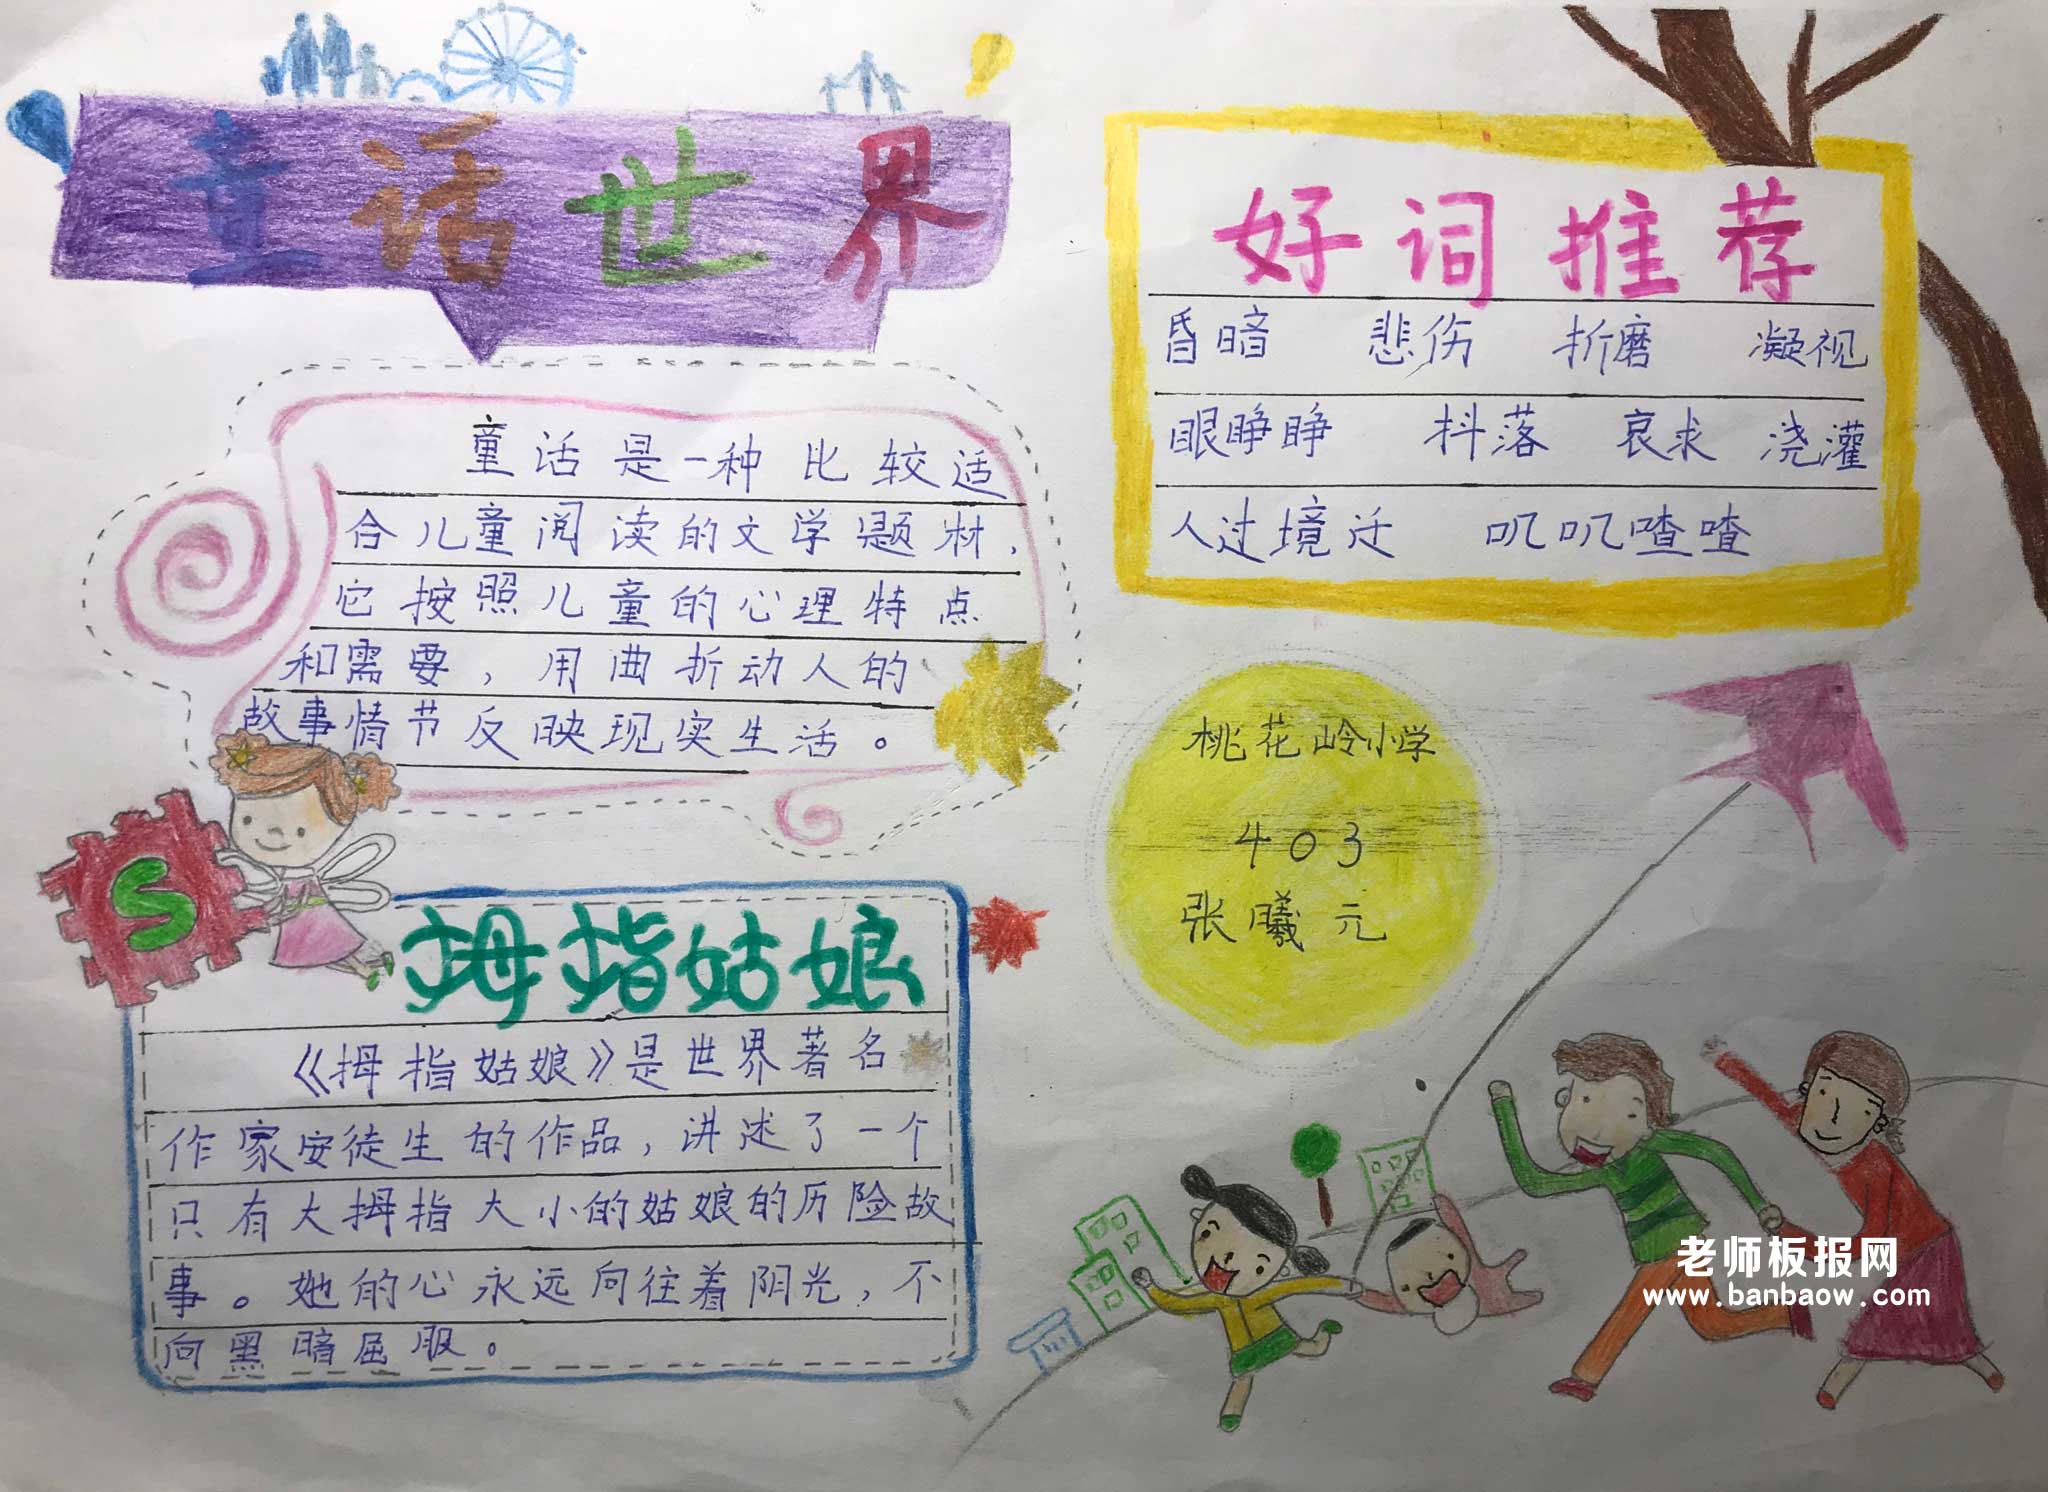 童话世界
童话是一种比较适
合儿童阅读的文学题材，
它按照儿童的心理特点
和需要，用曲折动人的
故事情节反映现实生活。
S
拇指姑娘
《拇指姑娘》是世界著名
作家安徒生的作品，讲述了一个
只有大拇指大小的姑娘的历险故
事。她的心永远向往着阳光，不
向黑暗屈服。
好词推荐
昏暗 悲伤 折磨 凝视
眼睁睁 抖落 哀求 浇灌
人过境迁 叽叽喳喳
桃花岭小学
403
张曦元
老师板报网
www.banbaow.com